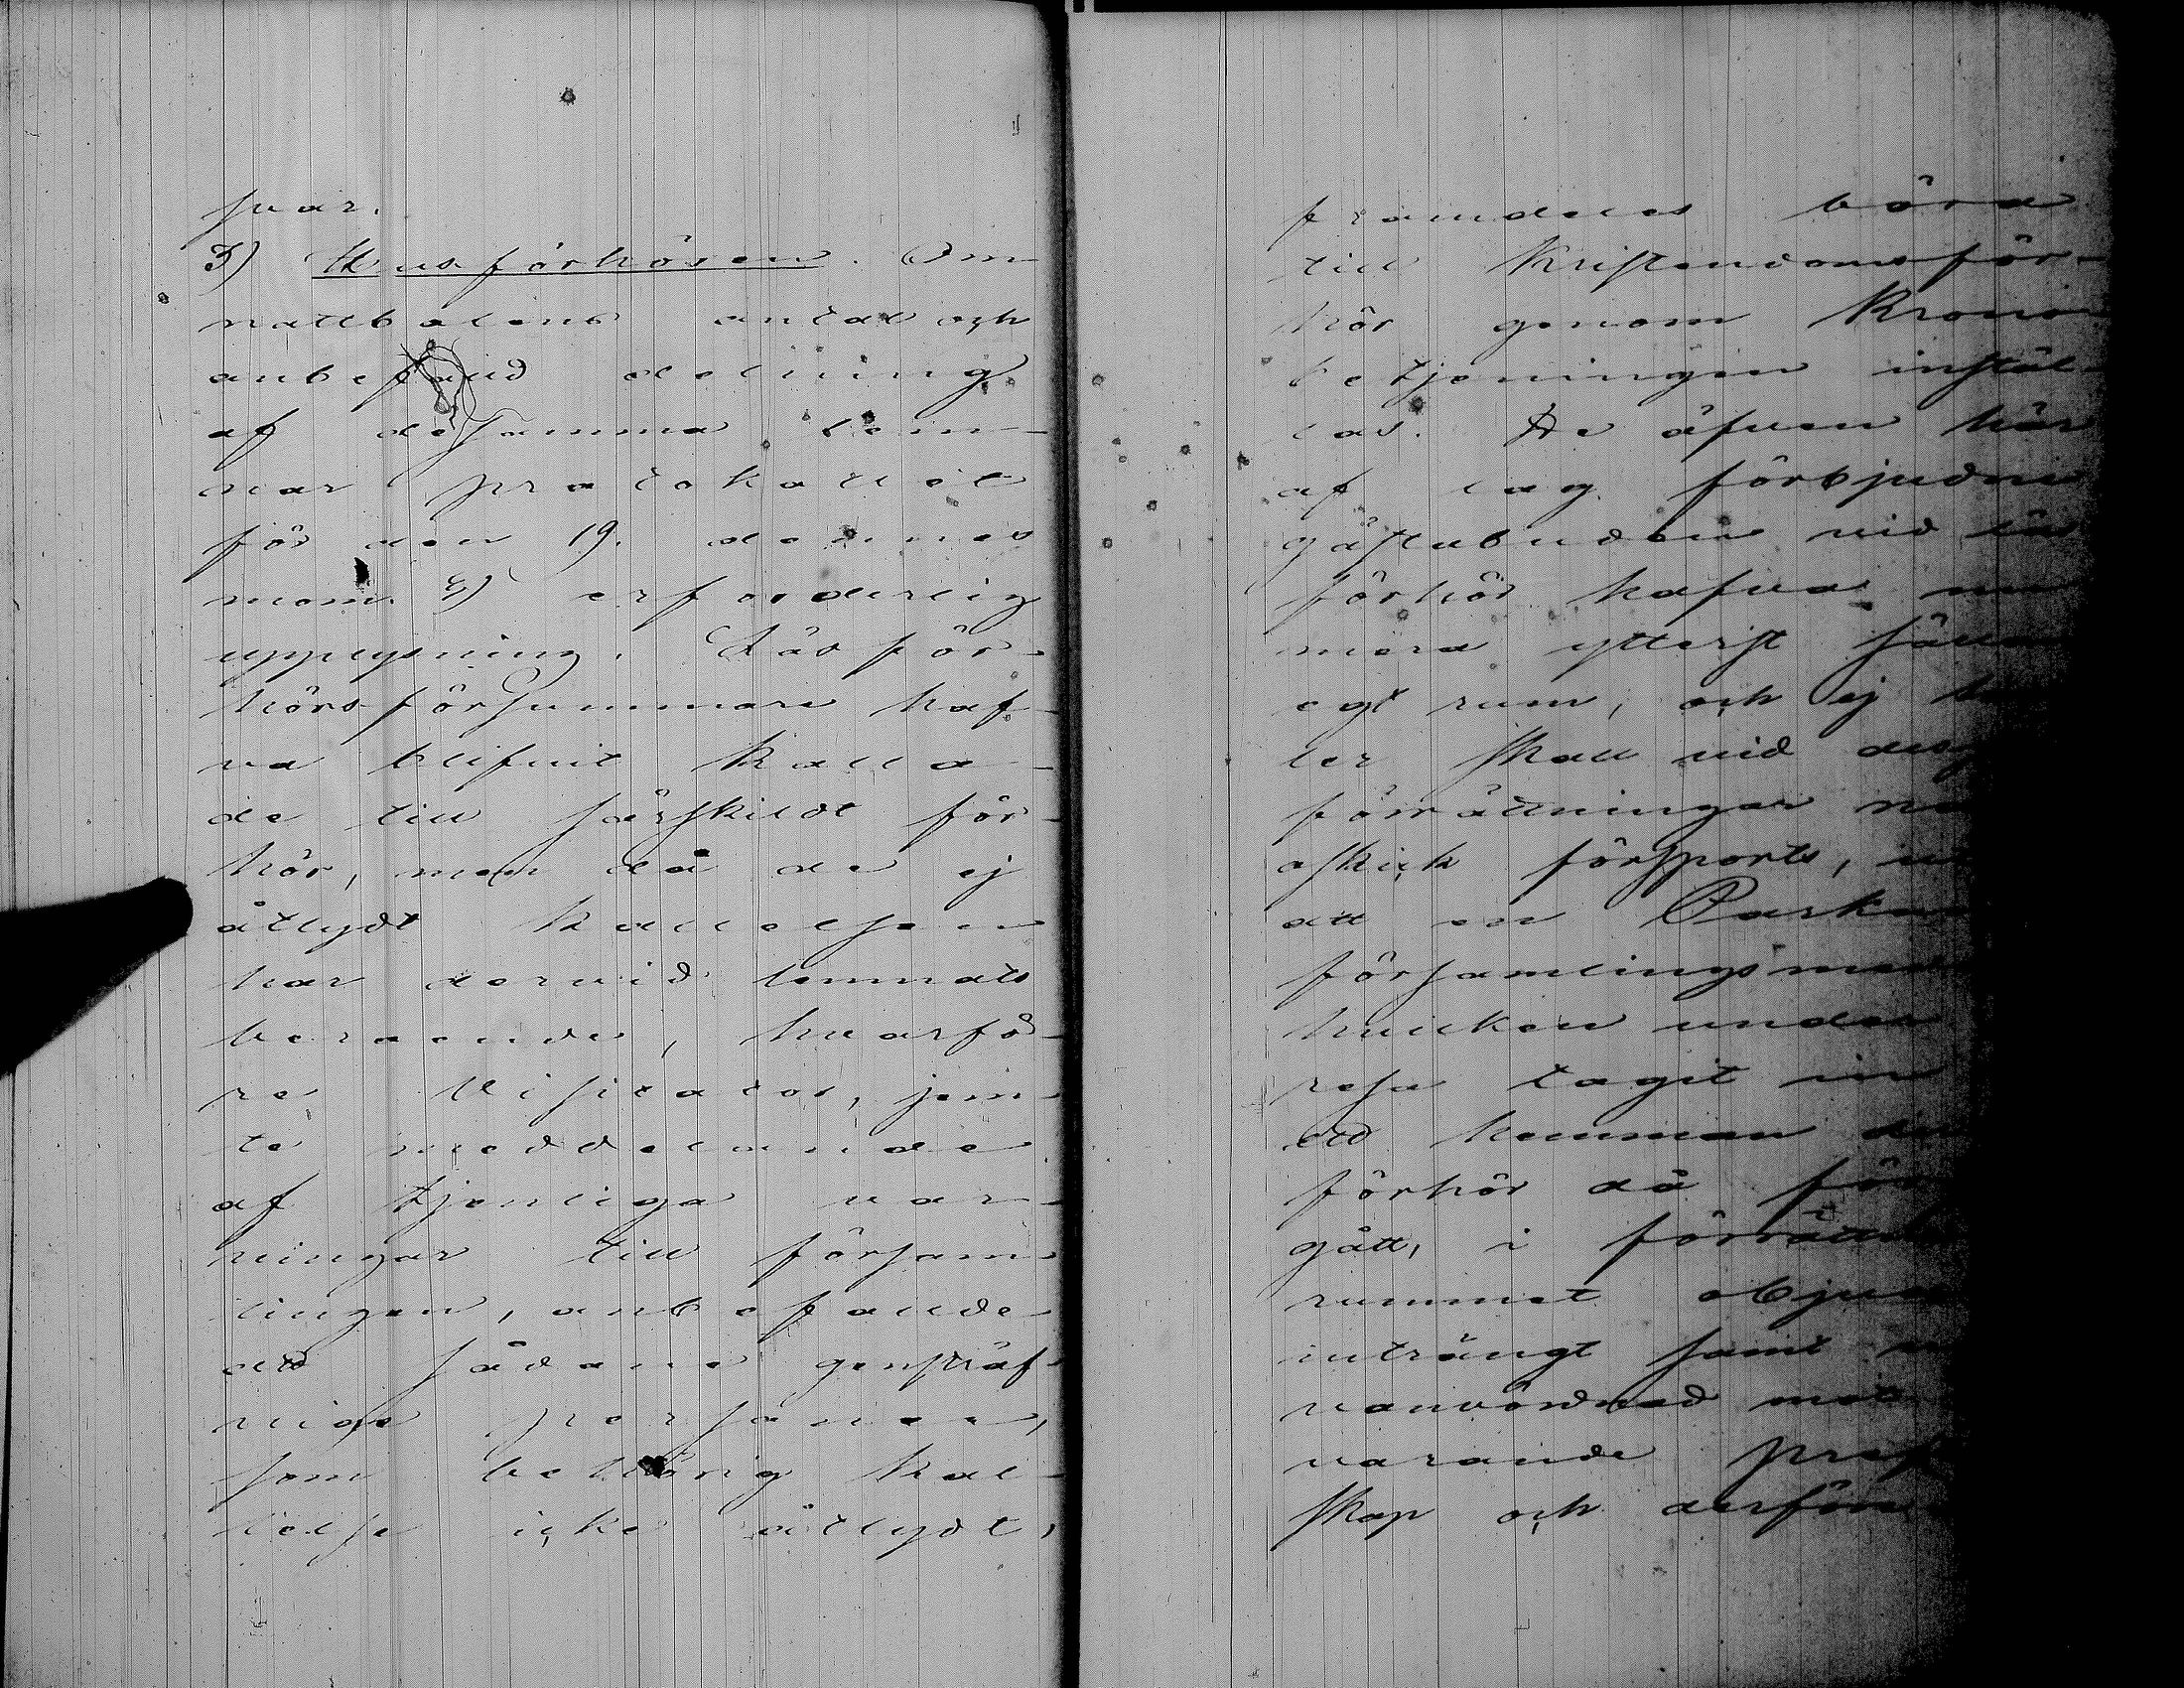 svar.
3) Husförhören. Om
nattbalens antal och
anbefald delning
af desamma lem-
nar protokollet
för den 19. dennes
mom. 3) erforderlig
upplysning. Läsför-
hörsförsummare haf-
va blifvit kalla-
de till särskildt för-
hör, men då de ej
åtlydt kallelsen
har dervid lemnats
beroende, hvarfö-
re Visitator, jem-
te meddelande
af tjenliga var-
ningar till försam
lingen, anbefallde
att sådane genstäf-
vige personer,
som behörig kal-
lelse icke åtlydt,
framdeles böra
till Kristendomsför-
hör genom Krono
betjeningen instäl-
las. De äfven här
af lag förbjudne
gästabuden vid läs
förhör hafva nu
mera ytterst sällan
egt rum, och ej
ler skall vid
förrättningar
oskick försports,
att en
församlingsmed
hvilken under
resa tagit in
ett hemman der
förhör då för
gått, i förrättn
rummet objud
inträngt samt
vanvördnad mot
varande prest
skap och derför